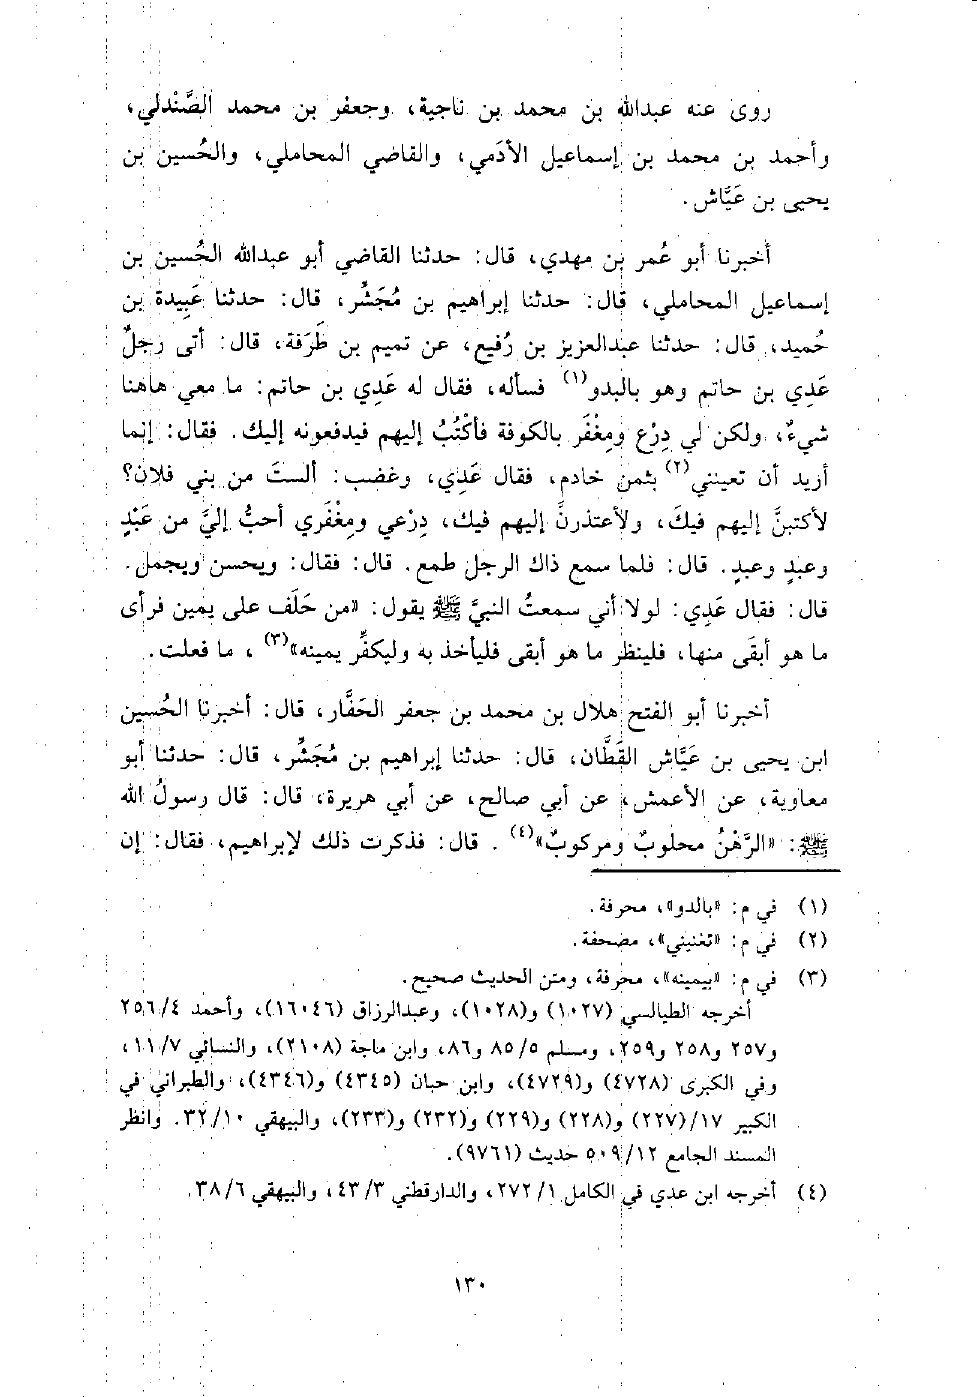 روى عنه عبدالله بن محمد بن ناجية، وجعفر بن محمد الصَّنْدلي،
وأحمد بن محمد بن إسماعيل الأدَمي، والقاضي المحاملي، والحُسين بن
يحيى بن عَيَّاش.
أخبرنا أبو عُمر بن مهدي، قال: حدثنا القاضي أبو عبدالله الحُسين بن
إسماعيل المحاملي، قال: حدثنا إبراهيم بن مُجَشِّر، قال: حدثنا عَبِيدة بن
حُميد، قال: حدثنا عبدالعزيز بن رُفيع، عن تميم بن طَرَفة، قال: أتى رجلٌ
عَدِي بن حاتم وهو بالبدو(١) فسأله، فقال له عَدِي بن حاتم: ما معي هاهنا
شيءٌ، ولكن لي دِرْع ومِغْفَر بالكوفة فأكْتُبُ إليهم فيدفعونه إليك. فقال: إنما
أريد أن تعينني(٢) بثمن خادم، فقال عَدِي، وغضب: ألستَ من بني فلان؟
لأكتبنَّ إليهم فيكَ، ولأعتذرنَّ إليهم فيك، دِرْعي ومِغْفَري أحبُّ إليَّ من عَبْدٍ
وعبدٍ وعبدٍ. قال: فلما سمع ذاك الرجل طمع. قال: فقال: ويحسن ويجمل.
قال: فقال عَدِي: لولا أني سمعتُ النبيَّ ﷺ يقول: «من حَلَف على يمين فرأى
ما هو أبقَى منها، فلينظر ما هو أبقى فليأخذ به وليكفِّر يمينه»(٣)، ما فعلت.
أخبرنا أبو الفتح هلال بن محمد بن جعفر الحَفَّار، قال: أخبرنا الحُسين
ابن يحيى بن عَيَّاش القَطَّان، قال: حدثنا إبراهيم بن مُجَشِّر، قال: حدثنا أبو
معاوية، عن الأعمش، عن أبي صالح، عن أبي هريرة، قال: قال رسولُ الله
ﷺ: «الرَّهْنُ محلوبٌ ومركوبٌ»(٤). قال: فذكرت ذلك لإبراهيم، فقال: إن
(١) في م: «بالدو»، محرفة.
(٢) في م: «تغنيني»، مصحفة.
(٣) في م: «بيمينه»، محرفة، ومتن الحديث صحيح.
أخرجه الطيالسي (١٠٢٧) و(١٠٢٨)، وعبدالرزاق (١٦٠٤٦)، وأحمد ٢٥٦/٤
و٢٥٧ و٢٥٨ و٢٥٩، ومسلم ٨٥/٥ و٨٦، وابن ماجة (٢١٠٨)، والنسائي ١١/٧،
وفي الكبرى (٤٧٢٨) و(٤٧٢٩)، وابن حبان (٤٣٤٥) و(٤٣٤٦)، والطبراني في
الكبير ١٧/(٢٢٧) و(٢٢٨) و(٢٢٩) و(٢٣٢) و(٢٣٣)، والبيهقي ٣٢/١٠. وانظر
المسند الجامع ٥٠٩/١٢ حديث (٩٧٦١).
(٤) أخرجه ابن عدي في الكامل ٢٧٢/١، والدارقطني ٤٣/٣، والبيهقي ٣٨/٦.
١٣٠